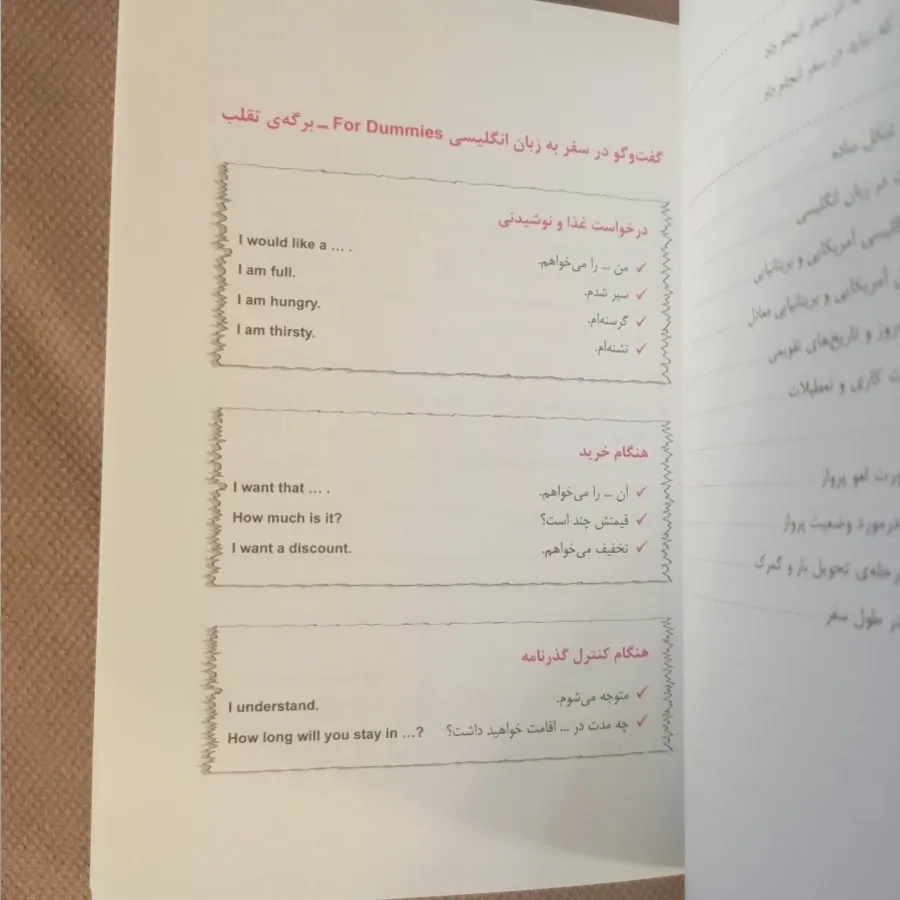 گفت‌وگو در سفر به زبان انگلیسی For Dummies ــ برگه‌ی تقلب
درخواست غذا و نوشیدنی
✓ من ... را می‌خواهم. I would like a ... .
✓ سیر شدم. I am full.
✓ گرسنه‌ام. I am hungry.
✓ تشنه‌ام. I am thirsty.
هنگام خرید
✓ آن ... را می‌خواهم. I want that ... .
✓ قیمتش چند است؟ How much is it?
✓ تخفیف می‌خواهم. I want a discount.
هنگام کنترل گذرنامه
✓ متوجه می‌شوم. I understand.
✓ چه مدت در ... اقامت خواهید داشت؟ How long will you stay in ...?
در سفر انجام داد
که نباید در سفر انجام داد
اشکال ساده
در زبان انگلیسی
آمریکایی و بریتانیایی
آمریکایی و بریتانیایی معادل
روز و تاریخ‌های تقویمی
کاری و تعطیلات
صورت لغو پرواز
درمورد وضعیت پرواز
مرحله‌ی تحویل بار و گمرک
در طول سفر